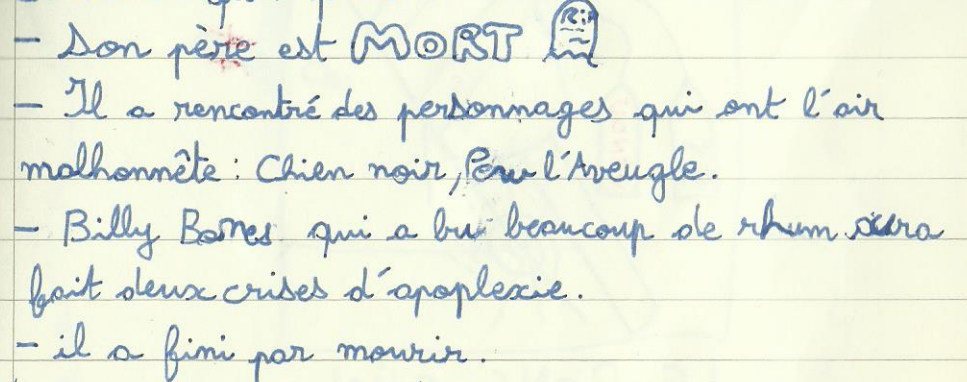 - Son père est MORT RiP
- Il a rencontré des personnages qui ont l'air
malhonnête : Chien noir, Pew l'Aveugle.
- Billy Bones qui a bu beaucoup de rhum aura
fait deux crises d'apoplexie.
- il a fini par mourir.